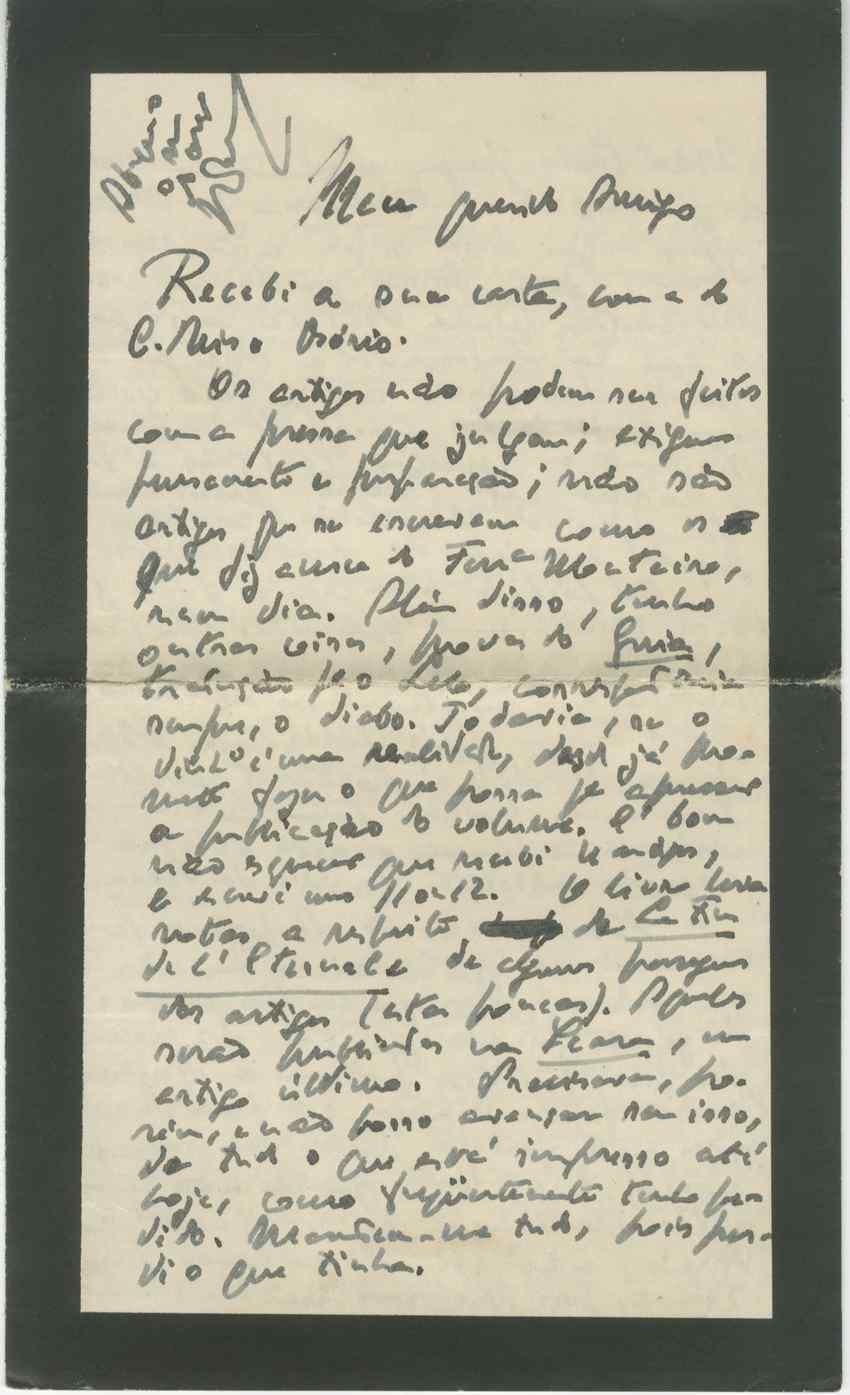 Meu querido Amigo
Recebi a sua carta, com a do
C. Osório.
Os artigos não podem ser feitos
com a pressa que julgam; exigem
pensamento e preparação; não são
artigos que se escrevem como os
que diz acerca do Ferra Monteiro,
num dia. Além disso, tenho
outras coisas, provas do Guia,
tradução p.a o Lelo, correspondência
sempre, o diabo. Todavia, se o
é uma realidade, desde já pro-
meto fazer o que possa p.a apressar
a publicação do volume. É bom
não esquecer que recebi
e escrevi uns 11 ou 12. O livro leva
notas a respeito de La Fin
de l'Eternel e de alguns passages
dos artigos (estas poucas). Aqueles
serão publicados na Seara, um
artigo último. Precisava, po-
rém, e não posso avançar sem isso,
de tudo o que está impresso até
hoje, como freqüentemente tenho pe-
dido. Mandem-me tudo, pois per-
di o que tinha.